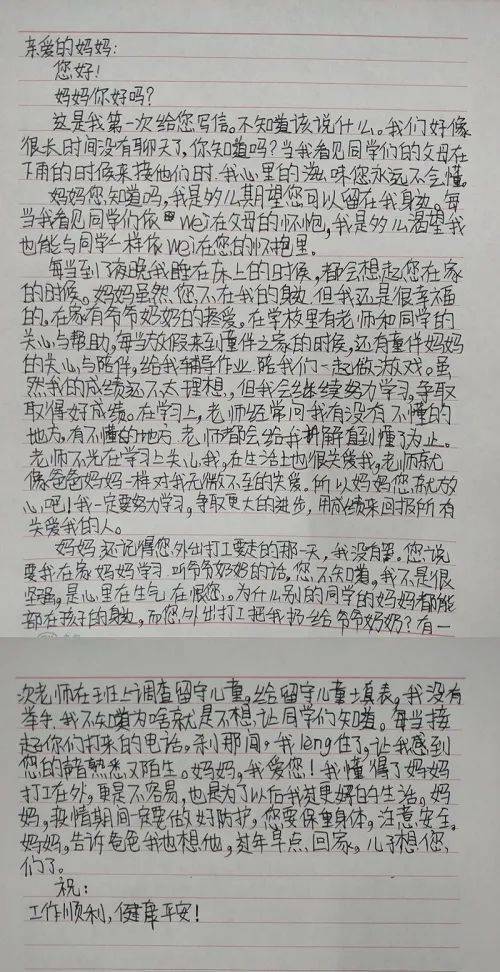 亲爱的妈妈:
您好!
妈妈你好吗?
这是我第一次给您写信。不知道该说什么。我们好像
很长时间没有聊天了,你知道吗?当我看见同学们的父母在
下雨的时候来接他们时.我心里的滋味您永远不会懂。
妈妈您知道吗,我是多么期望您可以留在我身边。每
当我看见同学们依wei在父母的怀抱,我是多么渴望我
也能与同学一样依wei在您的怀抱里.
每当到了夜晚我睡在床上的时候,都会想起您在家
的时候。妈妈虽然您不在我的身边 但我还是很幸福
的。在家有爷爷奶奶的疼爱。在学校里有老师和同学的
关心与帮助,每当放假来到童伴之家的时候,还有童伴妈妈
的关心与陪伴,给我辅导作业.陪我们一起做游戏。虽
然我的成绩还不太理想,但我会继续努力学习,争取
取得好成绩。在学习上,老师经常问我有没有不懂的
地方,有不懂的地方老师都会给我讲解直到懂了为止。
老师不光在学习上关心我,在生活上也很关爱我,老师就
像爸爸妈妈一样对我无微不至的关爱。所以妈妈您就放
心吧!我一定要努力学习,争取更大的进步,用成绩来回报所有
关爱我的人。
妈妈,还记得您外出打工要走的那一天,我没有哭。您说
要我在家妈妈学习.听爷爷奶奶的话,您不知道,我不是很
坚强,是心里在生气在恨您。为什么别的同学的妈妈都能
都在孩子的身边,而您外出打工把我扔给爷爷奶奶?有一
次老师在班上调查留守儿童,给留守儿童填表,我没有
举手.我不知道为啥就是不想让同学们知道。每当接
起你们打来的电话,刹那间,我leng住了,让我感到
您的声音熟悉又陌生。妈妈,我爱您!我懂得了妈妈
打工在外,更是不容易,也是为了以后我过更好的生活。妈
妈,疫情期间一定要做好防护,您要保重身体,注意安全.
妈妈,告诉爸爸我也想他,过年早点回家,儿子想您
们了。
祝:
工作顺利,健康平安!